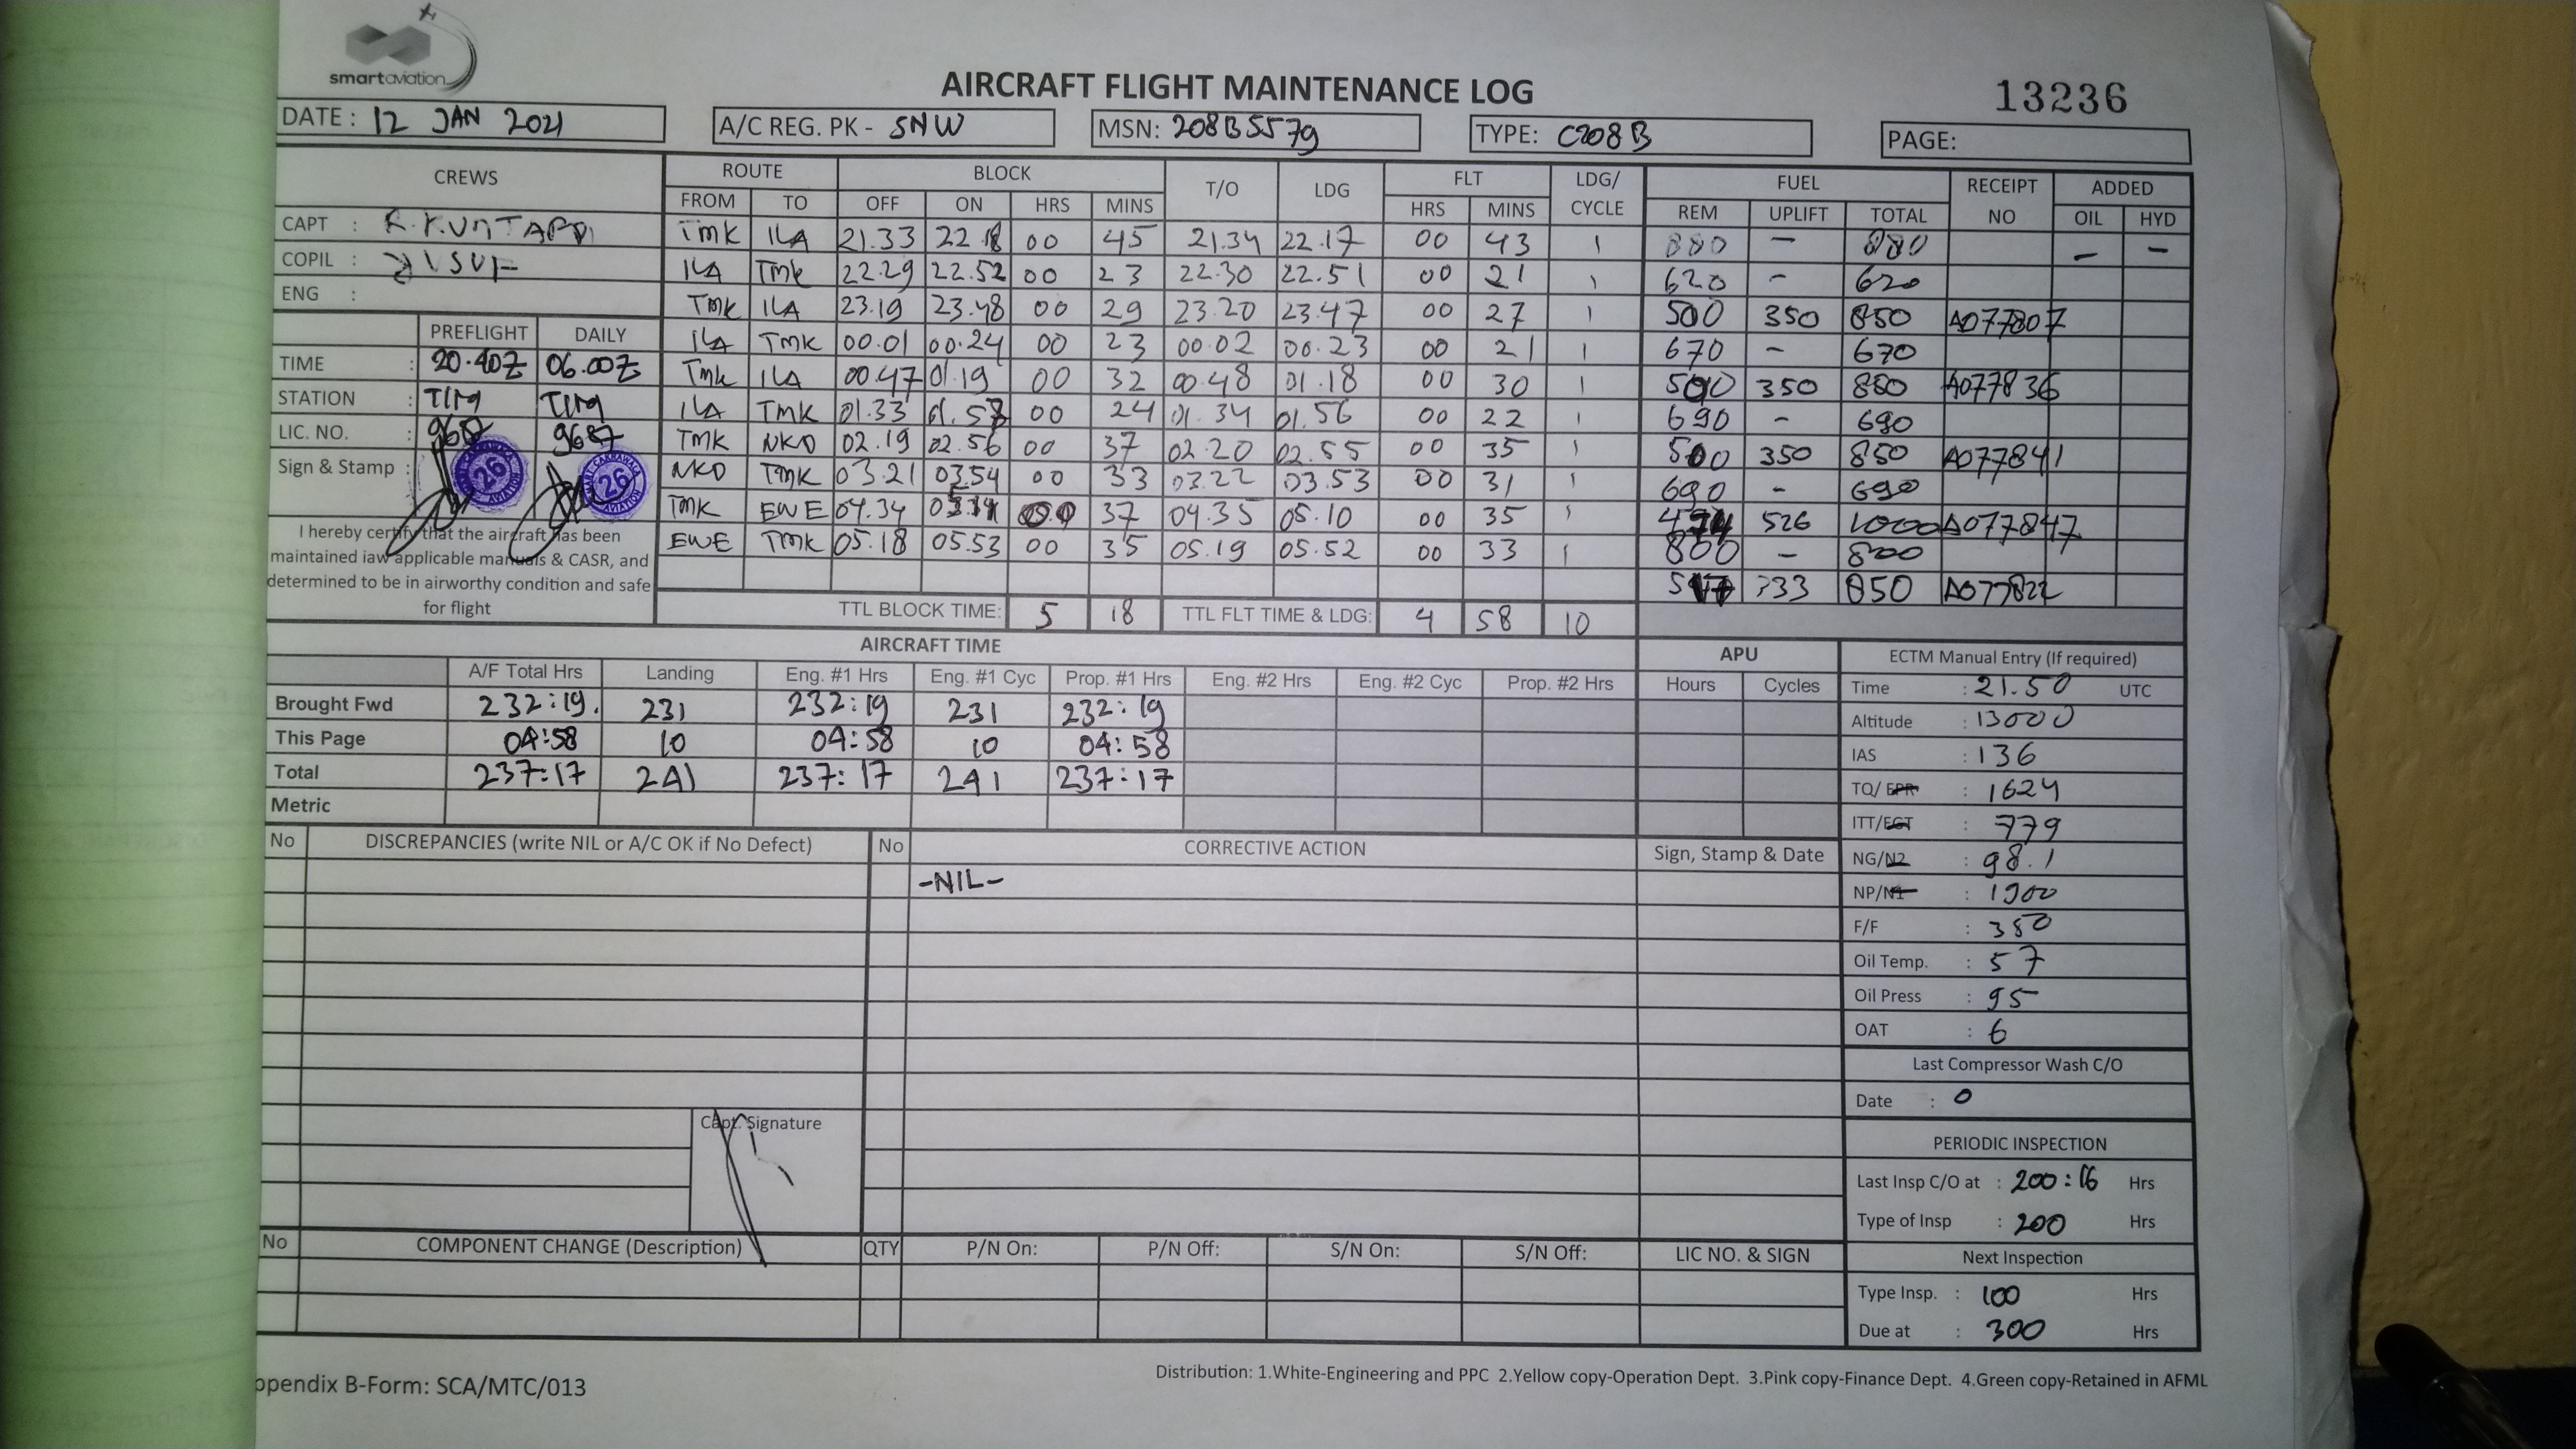 smartaviation
AIRCRAFT FLIGHT MAINTENANCE LOG
13236
DATE : 12 JAN 2021
A/C REG. PK - SNW
MSN: 208B5579
TYPE: C208B
PAGE:
CREWS ROUTE BLOCK T/O LDG FLT LDG/ CYCLE FUEL RECEIPT NO ADDED
FROM TO OFF ON HRS MINS HRS MINS REM UPLIFT TOTAL OIL HYD
CAPT :
COPIL :
ENG :
TMK ILA 21.33 22.18 00 45 21.34 22.17 00 43 1 880 - 880 - -
ILA TMK 22.29 22.52 00 23 22.30 22.51 00 21 1 620 - 620
TMK ILA 23.19 23.48 00 29 23.20 23.47 00 27 1 500 350 850 A077807
ILA TMK 00.01 00.24 00 23 00.02 00.23 00 21 1 670 - 670
TMK ILA 00.47 01.19 00 32 00.48 01.18 00 30 1 500 350 850 A077836
ILA TMK 01.33 01.57 00 24 01.34 01.56 00 22 1 690 - 690
TMK NKD 02.19 02.56 00 37 02.20 02.55 00 35 1 500 350 850 A077841
NKD TMK 03.21 03.54 00 33 03.22 03.53 00 31 1 690 - 690
TMK EWE 04.34 05.11 00 37 04.35 05.10 00 35 1 474 526 1000 A077847
EWE TMK 05.18 05.53 00 35 05.19 05.52 00 33 1 800 - 800
517 333 850 A077822
PREFLIGHT DAILY
TIME : 20.40Z 06.00Z
STATION : TIM TIM
LIC. NO. : 9687 9687
Sign & Stamp :
26 26
I hereby certify that the aircraft has been
maintained iaw applicable manuals & CASR, and
determined to be in airworthy condition and safe
for flight
TTL BLOCK TIME: 5 18 TTL FLT TIME & LDG: 4 58 10
AIRCRAFT TIME
A/F Total Hrs Landing Eng. #1 Hrs Eng. #1 Cyc Prop. #1 Hrs Eng. #2 Hrs Eng. #2 Cyc Prop. #2 Hrs
Brought Fwd 232:19. 231 232:19 231 232:19
This Page 04:58 10 04:58 10 04:58
Total 237:17 241 237:17 241 237:17
Metric
APU
Hours Cycles
ECTM Manual Entry (If required)
Time : 21.50 UTC
Altitude : 13000
IAS : 136
TQ/ EPR : 1624
ITT/EGT : 779
NG/N2 : 98.1
NP/N1 : 1900
F/F : 350
Oil Temp. : 57
Oil Press : 95
OAT : 6
Last Compressor Wash C/O
Date : 0
PERIODIC INSPECTION
Last Insp C/O at : 200:16 Hrs
Type of Insp : 200 Hrs
Next Inspection
Type Insp. : 100 Hrs
Due at : 300 Hrs
No DISCREPANCIES (write NIL or A/C OK if No Defect) No CORRECTIVE ACTION Sign, Stamp & Date
-NIL-
Capt. Signature
No COMPONENT CHANGE (Description) QTY P/N On: P/N Off: S/N On: S/N Off: LIC NO. & SIGN
Distribution: 1.White-Engineering and PPC 2.Yellow copy-Operation Dept. 3.Pink copy-Finance Dept. 4.Green copy-Retained in AFML
ppendix B-Form: SCA/MTC/013